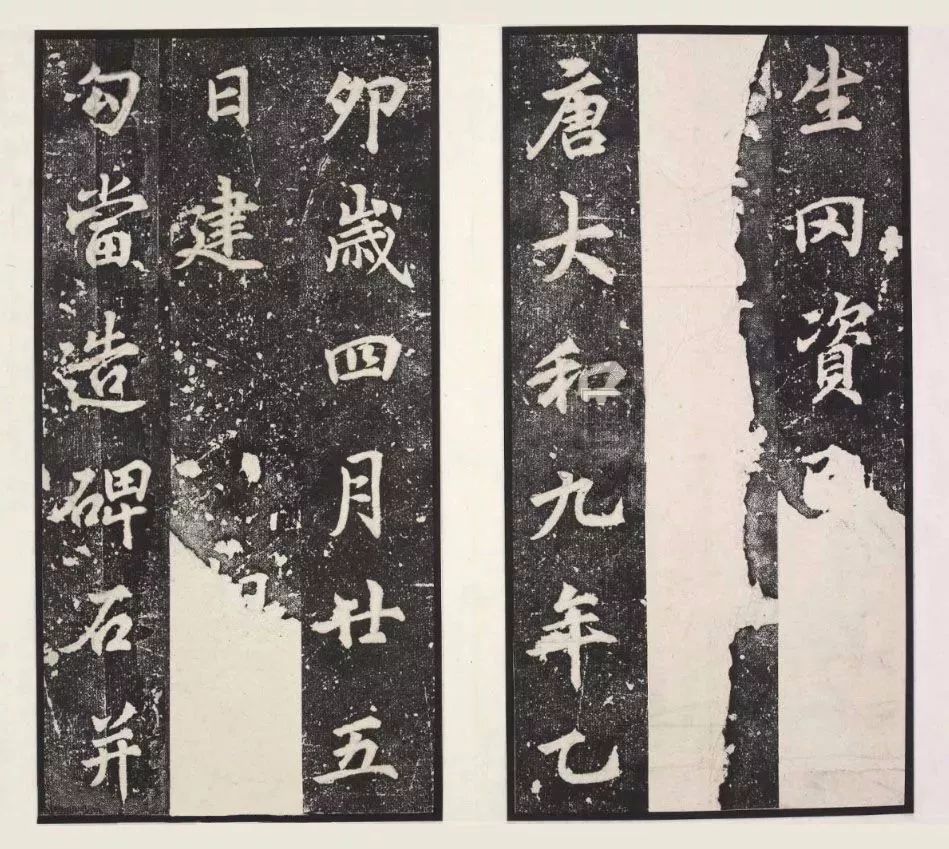 生因資
唐大和九年乙
卯歲四月廿五
日建
勾當造碑石并